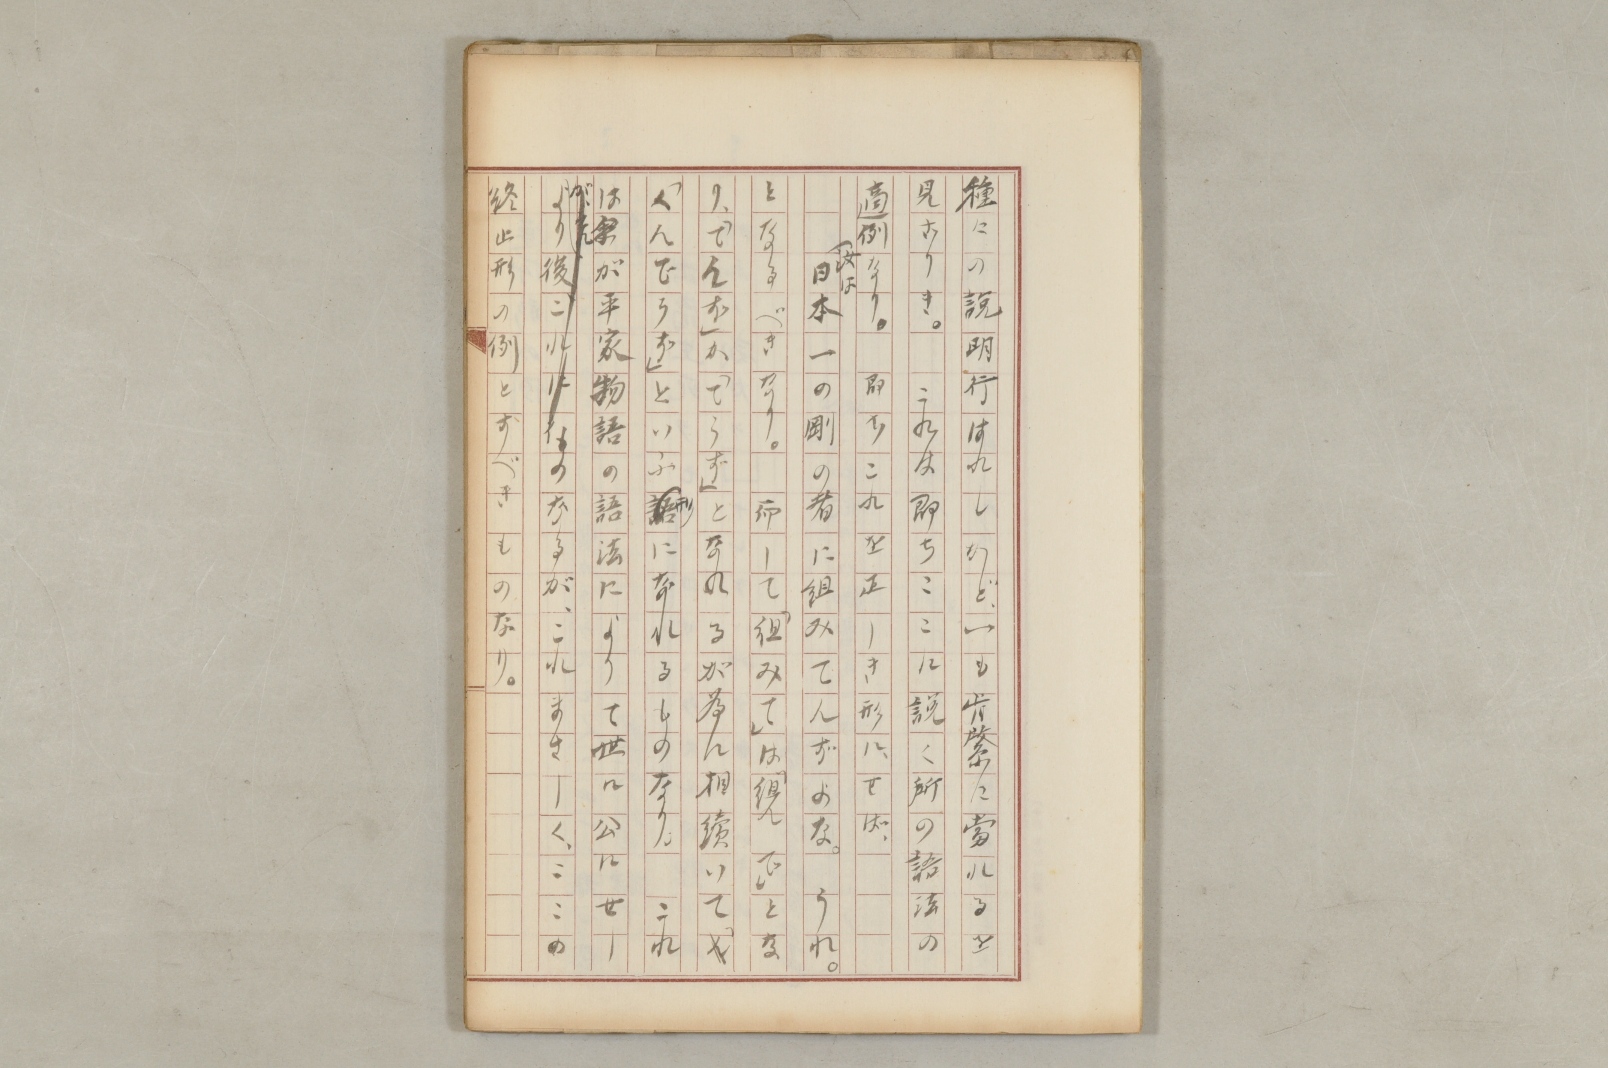 種々の説明行はれしかど、一も肯綮に當れるを
見ざりき。これは即ちここに説く所の語法の
適例なり。即ちこれを正しき形にせば、
(汝は)日本一の剛の者に組みてんずよな。うれ。
となるべきなり。而して「組みて」は「組んで」とな
り、「てんず」が「てうず」となれるが為に相續いて
「くんでうず」といふ形になれるものなり。これ
は余が平家物語の語法によりて世に公にせし
ものなるが、これまさしく、ここの
終止形の例とすべきものなり。